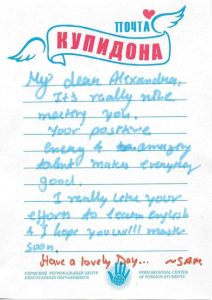 ПОЧТА
КУПИДОНА
My dear Alexandra,
It's really nice
meeting you.
Your positive
energy & amazing
talent makes everyday
good.
I really like your
efforts to learn english
& I hope you will master
soon.
Have a lovely Day... ~SAM
ПЕРМСКИЙ РЕГИОНАЛЬНЫЙ ЦЕНТР
ИНОСТРАННЫХ ОБУЧАЮЩИХСЯ
PERM REGIONAL CENTER
OF FOREIGN STUDENTS